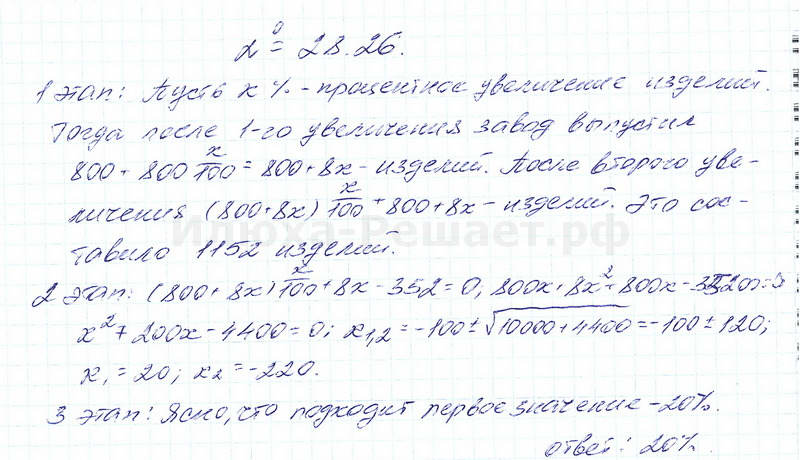 № 28.26.
1 этап: Пусть x % - процентное увеличение изделий.
Тогда после 1-го увеличения завод выпустил
800 + 800 x/100 = 800 + 8x - изделий. После второго уве-
личения (800+8x) x/100 + 800+8x - изделий. Это сос-
тавило 1152 изделий.
Илюха-Решает.рф
2 этап: (800 + 8x) x/100 + 8x - 352 = 0; 800x + 8x² + 800x - 35200 = 0
x² + 200x - 4400 = 0; x₁,₂ = -100 ± √10000 + 4400 = -100 ± 120;
x₁ = 20; x₂ = -220.
3 этап: Ясно, что подходит первое значение - 20%.
Ответ: 20%.